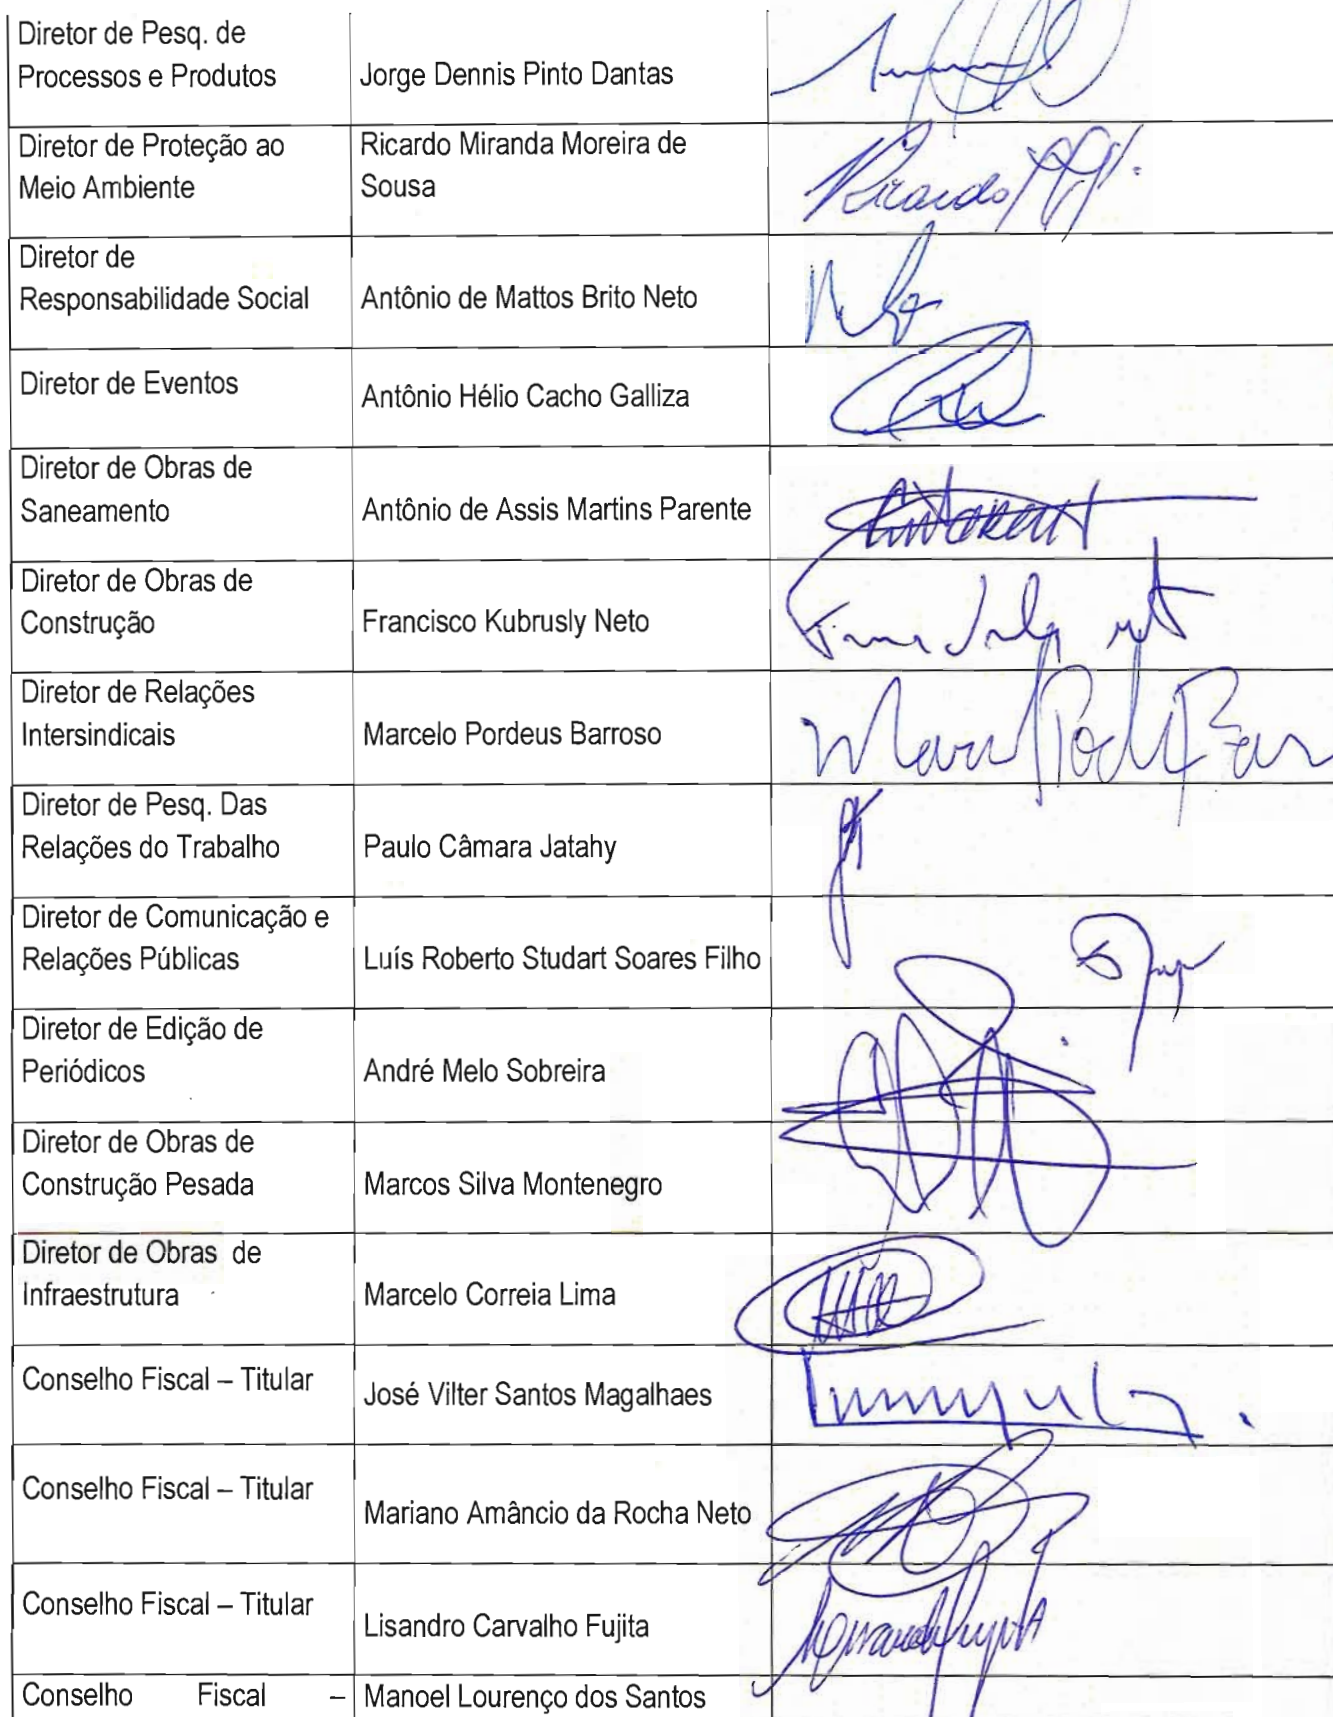 Diretor de Pesq. de
Processos e Produtos
Jorge Dennis Pinto Dantas
Diretor de Proteção ao
Meio Ambiente
Ricardo Miranda Moreira de
Sousa
Ricardo
Diretor de
Responsabilidade Social
Antônio de Mattos Brito Neto
Diretor de Eventos
Antônio Hélio Cacho Galliza
Diretor de Obras de
Saneamento
Antônio de Assis Martins Parente
Diretor de Obras de
Construção
Francisco Kubrusly Neto
Diretor de Relações
Intersindicais
Marcelo Pordeus Barroso
Diretor de Pesq. Das
Relações do Trabalho
Paulo Câmara Jatahy
Diretor de Comunicação e
Relações Públicas
Luís Roberto Studart Soares Filho
Diretor de Edição de
Periódicos
André Melo Sobreira
Diretor de Obras de
Construção Pesada
Marcos Silva Montenegro
Diretor de Obras de
Infraestrutura
Marcelo Correia Lima
Conselho Fiscal – Titular
José Vilter Santos Magalhaes
Conselho Fiscal – Titular
Mariano Amâncio da Rocha Neto
Conselho Fiscal – Titular
Lisandro Carvalho Fujita
Conselho Fiscal –
Manoel Lourenço dos Santos